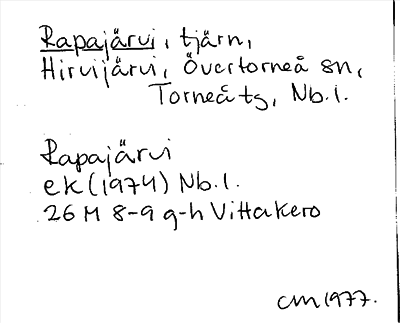 Rapajärvi, tjärn,
Hirvijärvi, Övertorneå sn,
Torneå tg, Nb.l.
Rapajärvi
ek (1974) Nb.l.
26 M 8-9 g-h Vittakero
CM 1977.